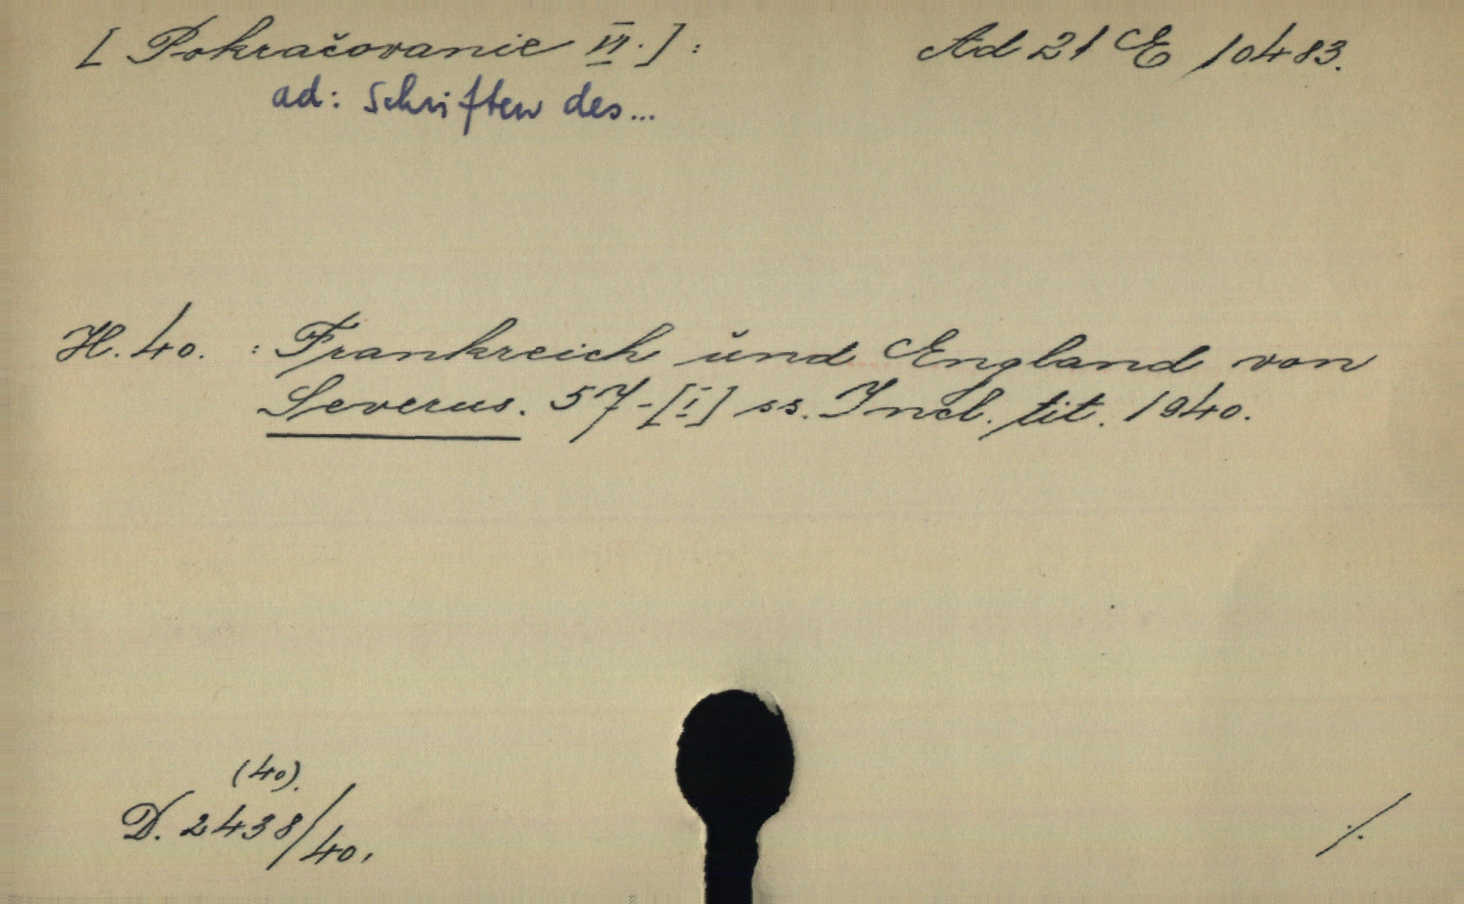 [Pokračovanie VI.]: Ad 21 E 10483.
ad: Schriften des...
H. 40. : Frankreich und England von
Severus. 57-[I] ss. Incl. tit. 1940.
(40).
D. 2438/40. ./.